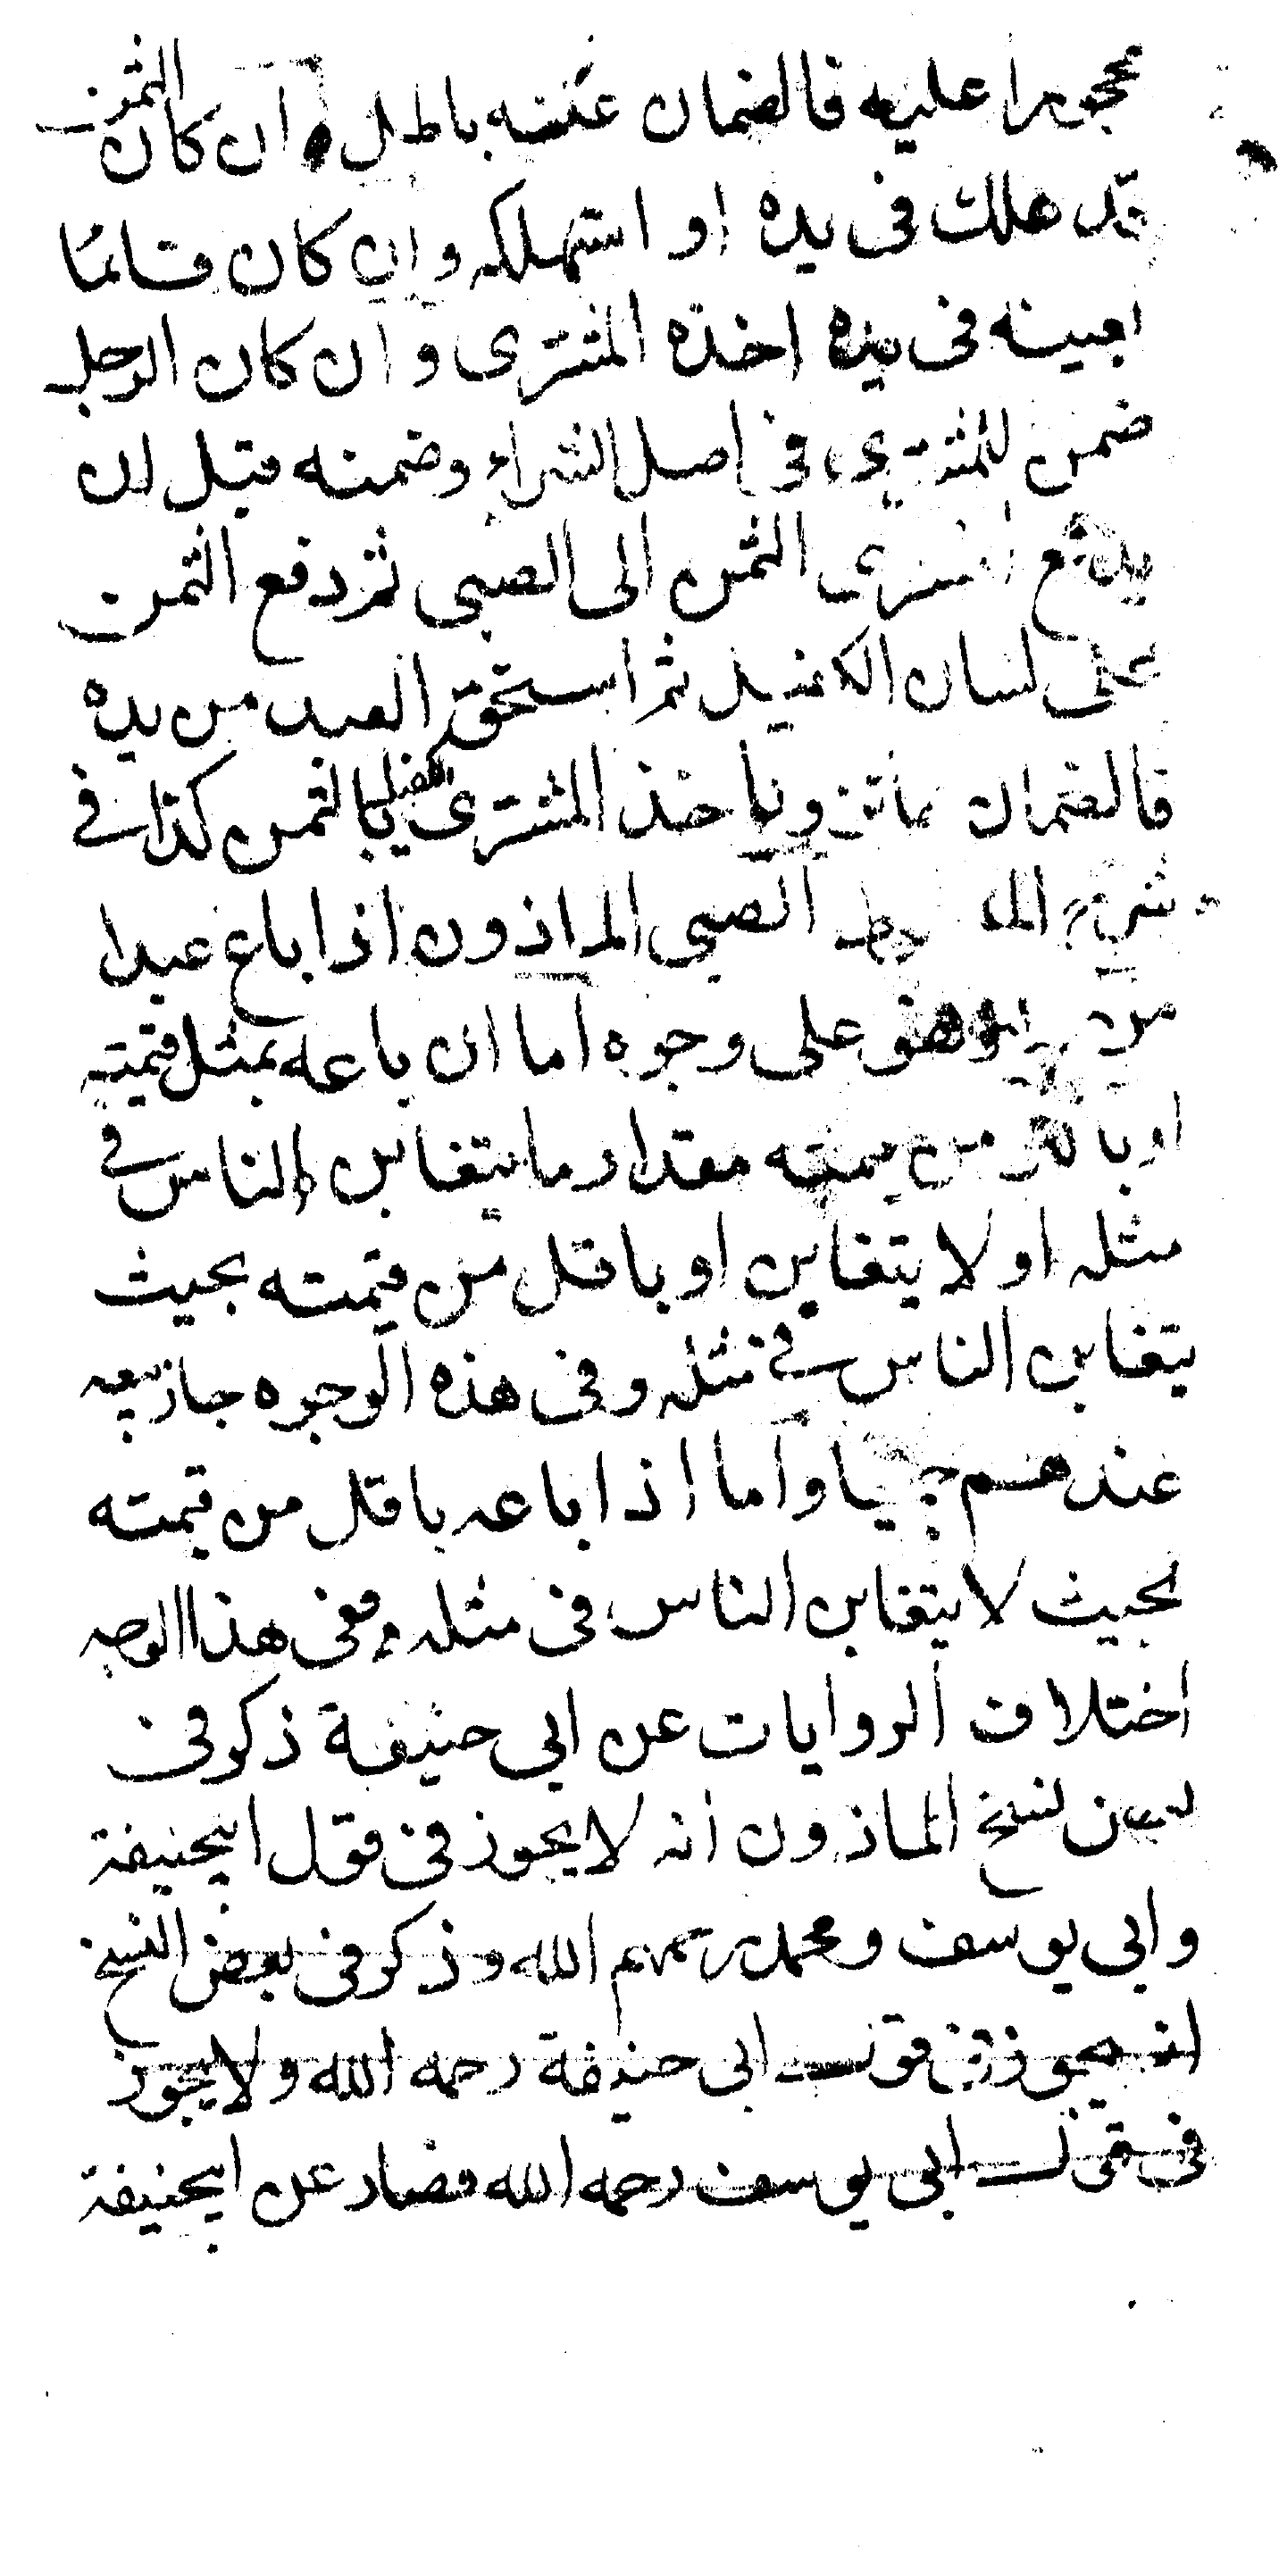 محجورا عليه فالضمان عنه باطل وان كان الثمن
قد هلك في يده او استهلكه وان كان قائما
بعينه في يده اخذه المشترى وان كان الرجل
ضمن للمشترى في اصل الشراء وضمنه قبل ان
يدفع المشترى الثمن الى الصبى ثم دفع الثمن
على لسان الكفيل ثم استحق العبد من يده
فالضمان جائز وياخذ المشترى الكفيل بالثمن كذا في
الصبى الماذون اذا باع عبدا
من فهو على وجوه اما ان باعه بمثل قيمته
او باكثر من قيمته مقدار ما يتغابن الناس في
مثله او لا يتغابن او باقل من قيمته بحيث
يتغابن الناس في مثله وفي هذه الوجوه جاز بيعه
عندهم جميعا واما اذا باعه باقل من قيمته
بحيث لا يتغابن الناس في مثله ففى هذا الوجه
اختلاف الروايات عن ابى حنيفة ذكر في
بعض نسخ الماذون انه لا يجوز في قول ابيحنيفة
وابى يوسف ومحمد رحمهم الله وذكر في بعض النسخ
انه يجوز في قول ابى حنيفة رحمه الله ولا يجوز
في قول ابى يوسف رحمه الله فصار عن ابيحنيفة